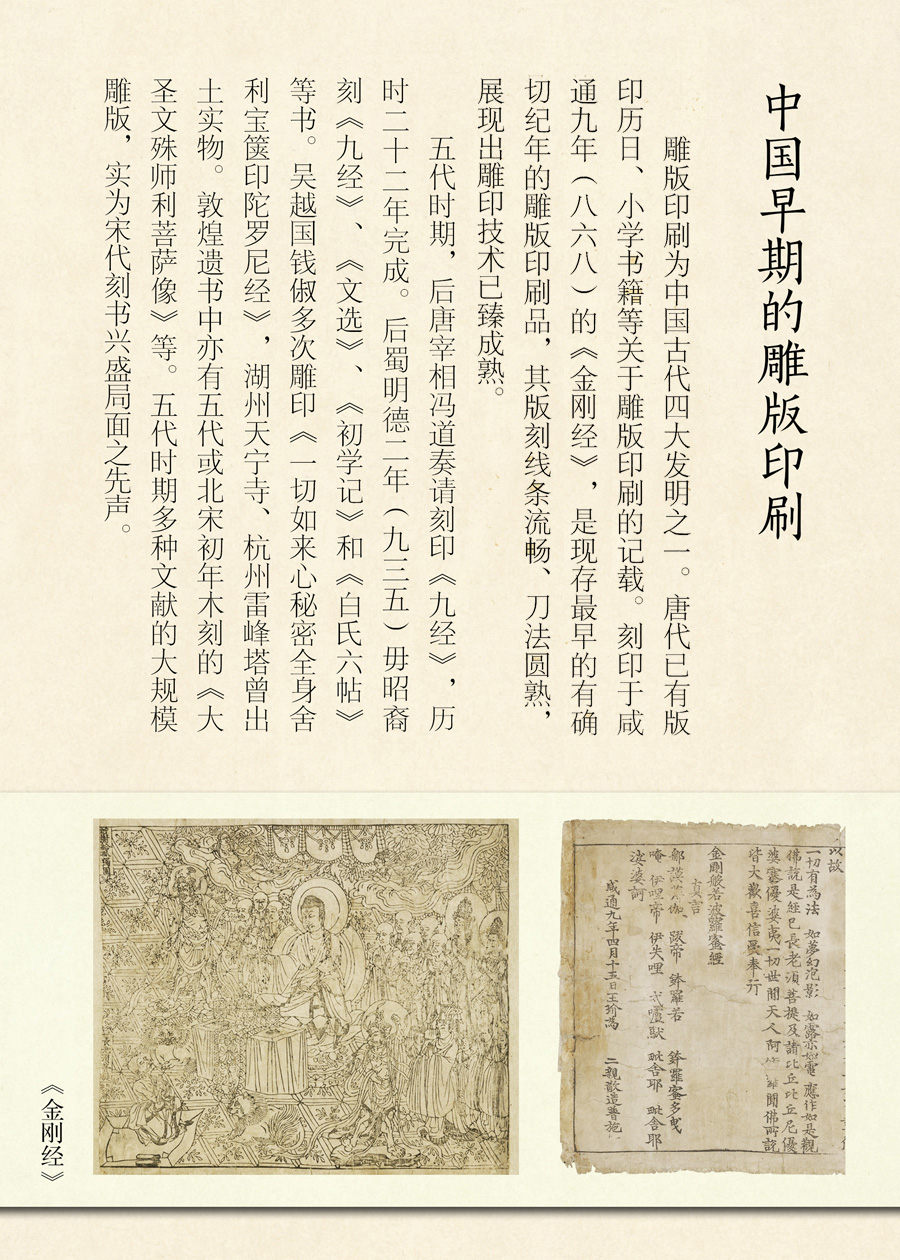 中国早期的雕版印刷
雕版印刷为中国古代四大发明之一。唐代已有版
印历日、小学书籍等关于雕版印刷的记载。刻印于咸
通九年（八六八）的《金刚经》，是现存最早的有确
切纪年的雕版印刷品，其版刻线条流畅、刀法圆熟，
展现出雕印技术已臻成熟。
五代时期，后唐宰相冯道奏请刻印《九经》，历
时二十二年完成。后蜀明德二年（九三五）毋昭裔
刻《九经》、《文选》、《初学记》和《白氏六帖》
等书。吴越国钱俶多次雕印《一切如来心秘密全身舍
利宝箧印陀罗尼经》，湖州天宁寺、杭州雷峰塔曾出
土实物。敦煌遗书中亦有五代或北宋初年木刻的《大
圣文殊师利菩萨像》等。五代时期多种文献的大规模
雕版，实为宋代刻书兴盛局面之先声。
以故
一切有為法 如夢幻泡影 如露亦如電 應作如是觀
佛說是經已長老須菩提及諸比丘比丘尼優
婆塞優婆夷一切世間天人阿 聞佛所說
皆大歡喜信受奉行
金剛般若波羅蜜經
真言
那謨 伽 跋帝 鉢羅若 鉢羅蜜多曳
唵 伊哩帝 伊失哩 戍嚧馱 毗舍耶 毗舍耶
娑婆訶
咸通九年四月十五日王玠為 二親敬造普施
《金刚经》